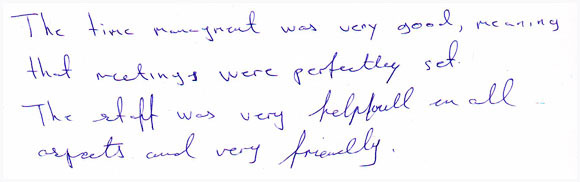 The time managment was very good, meaning
that meetings were perfectley set.
The staff was very helpfull in all
aspects and very friendly.